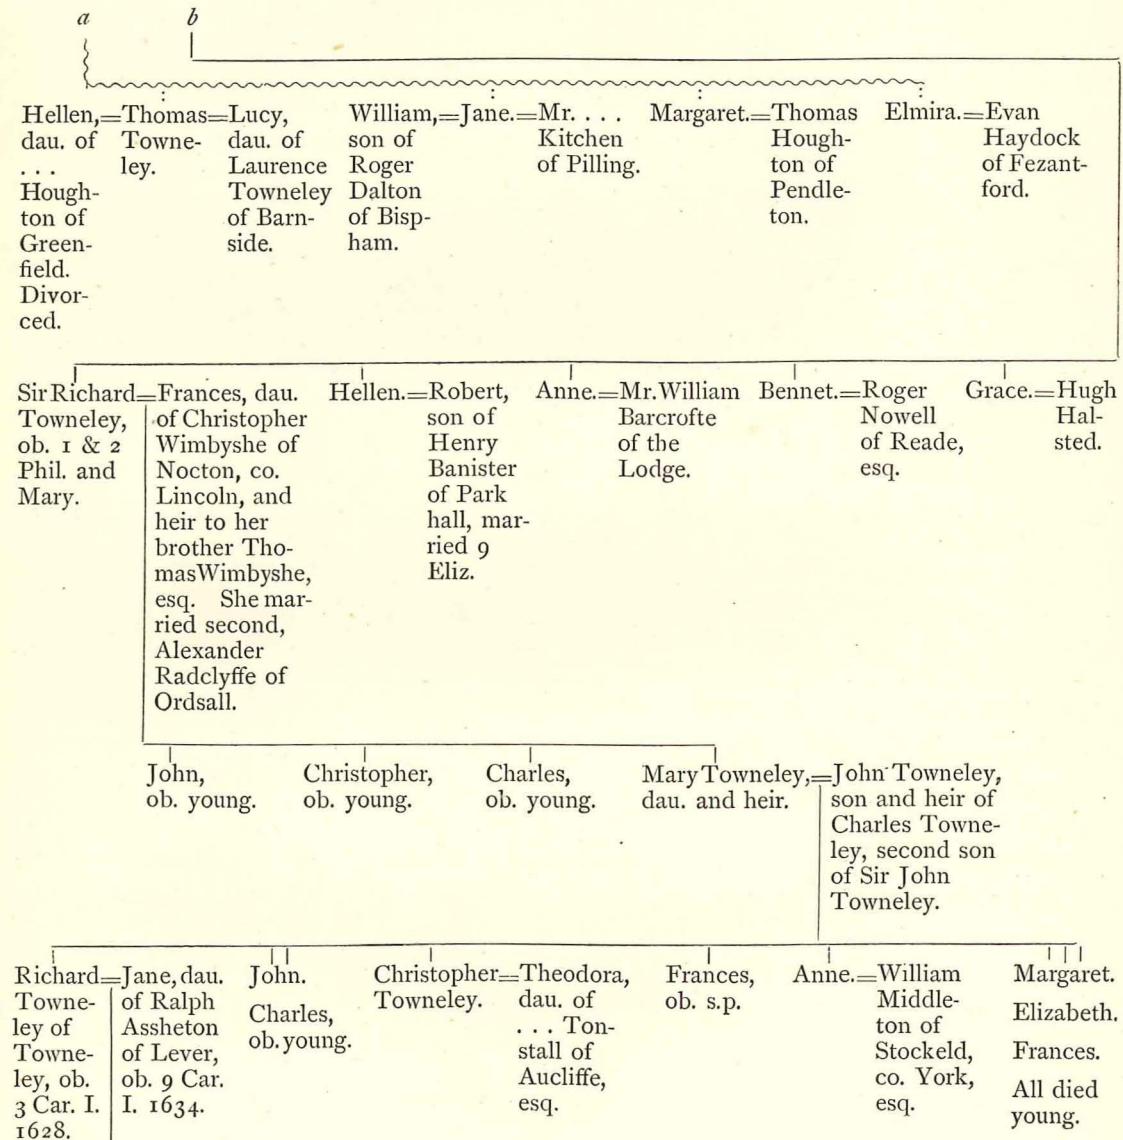 a
b
Hellen,=Thomas=Lucy,
dau. of
. . .
Hough-
ton of
Green-
field.
Divor-
ced.
Towne-
ley.
dau. of
Laurence
Towneley
of Barn-
side.
William,=Jane.=Mr. . . .
son of
Roger
Dalton
of Bisp-
ham.
Kitchen
of Pilling.
Margaret.=Thomas
Hough-
ton of
Pendle-
ton.
Elmira.=Evan
Haydock
of Fezant-
ford.
Sir Richard=Frances, dau.
Towneley,
ob. 1 & 2
Phil. and
Mary.
of Christopher
Wimbyshe of
Nocton, co.
Lincoln, and
heir to her
brother Tho-
mas Wimbyshe,
esq. She mar-
ried second,
Alexander
Radclyffe of
Ordsall.
Hellen.=Robert,
son of
Henry
Banister
of Park
hall, mar-
ried 9
Eliz.
Anne.=Mr. William
Barcrofte
of the
Lodge.
Bennet.=Roger
Nowell
of Reade,
esq.
Grace.=Hugh
Hal-
sted.
John,
ob. young.
Christopher,
ob. young.
Charles,
ob. young.
Mary Towneley,=John Towneley,
dau. and heir.
son and heir of
Charles Towne-
ley, second son
of Sir John
Towneley.
Richard=Jane, dau.
Towne-
ley of
Towne-
ley, ob.
3 Car. I.
1628.
of Ralph
Assheton
of Lever,
ob. 9 Car.
I. 1634.
John.
Charles,
ob. young.
Christopher=Theodora,
Towneley.
dau. of
. . . Ton-
stall of
Aucliffe,
esq.
Frances,
ob. s.p.
Anne.=William
Middle-
ton of
Stockeld,
co. York,
esq.
Margaret.
Elizabeth.
Frances.
All died
young.